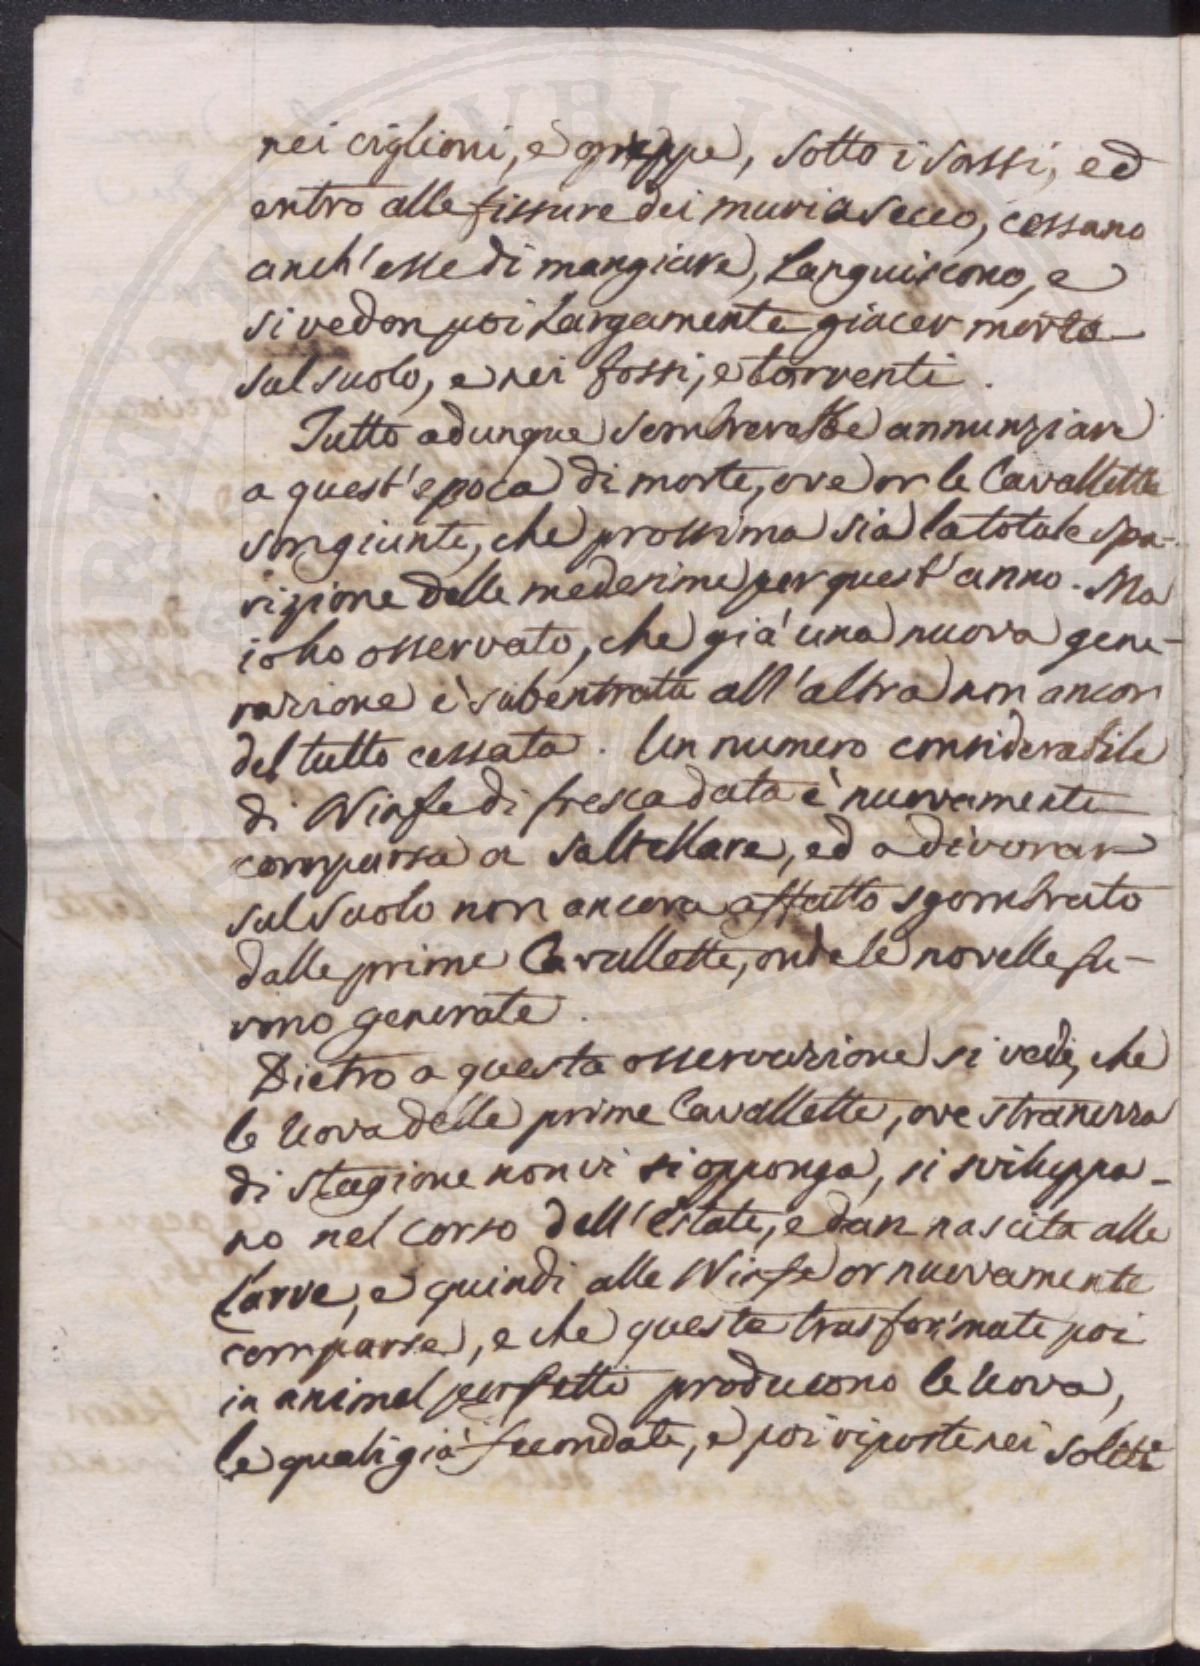 nei ciglioni, e greppe, sotto i sassi, ed
entro alle fissure dei muri a secco, cessano
anch'esse di mangiare, Languiscono, e
si vedon poi Largamente giacer morte
sul suolo, e nei fossi, e torrenti.
Tutto adunque sembrerebbe annunziare
a quest'epoca di morte, ove or le Cavallette
son giunte, che prossima sia la totale spa-
rizione delle medesime per quest'anno. Ma
io ho osservato, che già una nuova gene-
razione è subentrata all'altra non ancor
del tutto cessata. Un numero considerabile
di Ninfe di fresca data è nuovamente
comparsa a saltellare, ed a divorar
sul suolo non ancora affatto sgombrato
dalle prime Cavallette, onde le novelle fu-
rono generate.
Dietro a questa osservazione si vede, che
le Uova delle prime Cavallette, ove stranezza
di stagione non vi si opponga, si sviluppa-
no nel corso dell'Estate, e dan nascita alle
Larve, e quindi alle Ninfe or nuovamente
comparse, e che queste trasformate poi
in animal perfetti producono le Uova,
le quali già fecondate, e poi riposte nei solette